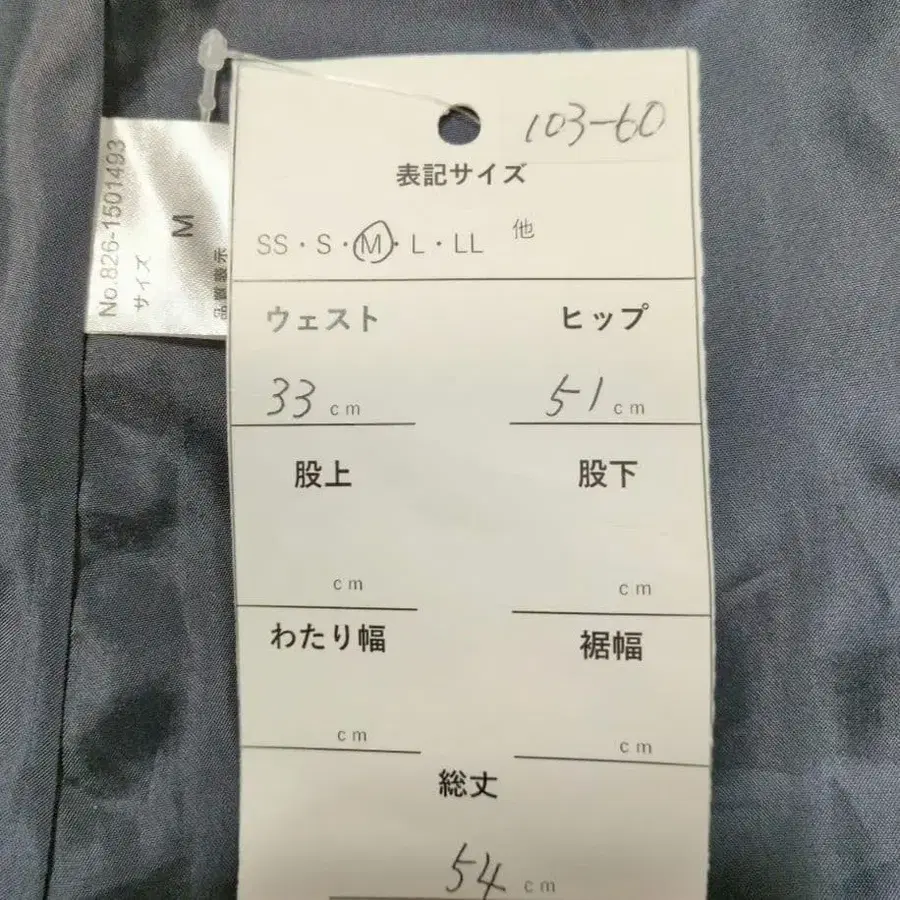 103-60
表記サイズ
SS・S・M・L・LL 他
ウェスト ヒップ
33 cm 51 cm
股上 股下
cm cm
わたり幅 裾幅
cm cm
総丈
54 cm
No.826-1501493
サイズ M
品質表示